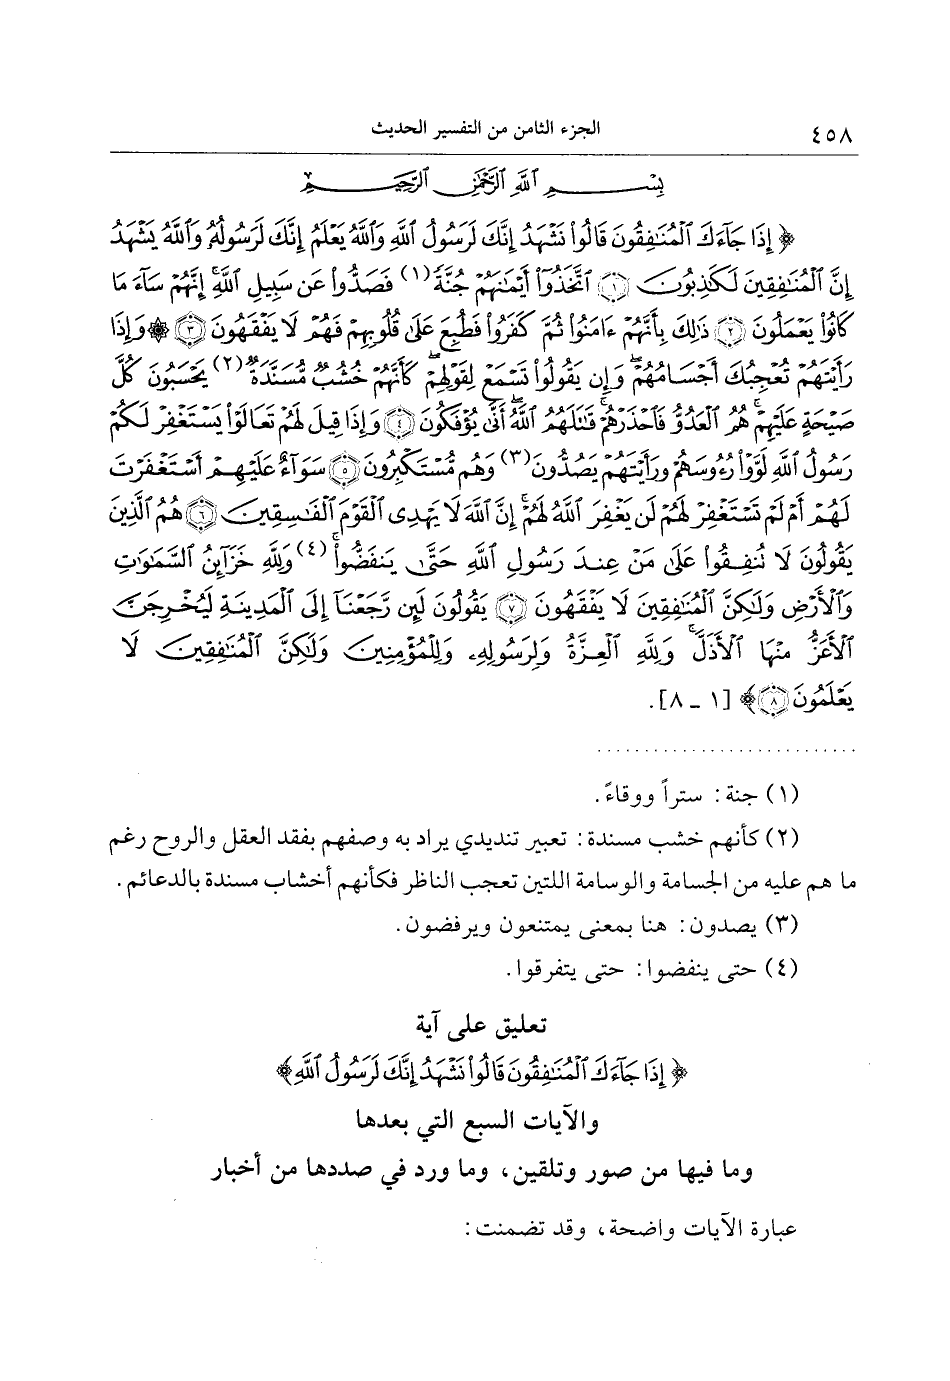 ٤٥٨ الجزء الثامن من التفسير الحديث
بِسْمِ اللَّهِ الرَّحْمَٰنِ الرَّحِيمِ
﴿ إِذَا جَآءَكَ ٱلْمُنَٰفِقُونَ قَالُوا۟ نَشْهَدُ إِنَّكَ لَرَسُولُ ٱللَّهِ وَٱللَّهُ يَعْلَمُ إِنَّكَ لَرَسُولُهُۥ وَٱللَّهُ يَشْهَدُ
إِنَّ ٱلْمُنَٰفِقِينَ لَكَٰذِبُونَ ۝١ ٱتَّخَذُوٓا۟ أَيْمَٰنَهُمْ جُنَّةً (١) فَصَدُّوا۟ عَن سَبِيلِ ٱللَّهِ ۚ إِنَّهُمْ سَآءَ مَا
كَانُوا۟ يَعْمَلُونَ ۝٢ ذَٰلِكَ بِأَنَّهُمْ ءَامَنُوا۟ ثُمَّ كَفَرُوا۟ فَطُبِعَ عَلَىٰ قُلُوبِهِمْ فَهُمْ لَا يَفْقَهُونَ ۝٣ ۞ وَإِذَا
رَأَيْتَهُمْ تُعْجِبُكَ أَجْسَامُهُمْ ۖ وَإِن يَقُولُوا۟ تَسْمَعْ لِقَوْلِهِمْ ۖ كَأَنَّهُمْ خُشُبٌ مُّسَنَّدَةٌ (٢) يَحْسَبُونَ كُلَّ
صَيْحَةٍ عَلَيْهِمْ ۚ هُمُ ٱلْعَدُوُّ فَٱحْذَرْهُمْ ۚ قَٰتَلَهُمُ ٱللَّهُ ۖ أَنَّىٰ يُؤْفَكُونَ ۝٤ وَإِذَا قِيلَ لَهُمْ تَعَالَوْا۟ يَسْتَغْفِرْ لَكُمْ
رَسُولُ ٱللَّهِ لَوَّوْا۟ رُءُوسَهُمْ وَرَأَيْتَهُمْ يَصُدُّونَ (٣) وَهُم مُّسْتَكْبِرُونَ ۝٥ سَوَآءٌ عَلَيْهِمْ أَسْتَغْفَرْتَ
لَهُمْ أَمْ لَمْ تَسْتَغْفِرْ لَهُمْ لَن يَغْفِرَ ٱللَّهُ لَهُمْ ۚ إِنَّ ٱللَّهَ لَا يَهْدِى ٱلْقَوْمَ ٱلْفَٰسِقِينَ ۝٦ هُمُ ٱلَّذِينَ
يَقُولُونَ لَا تُنفِقُوا۟ عَلَىٰ مَنْ عِندَ رَسُولِ ٱللَّهِ حَتَّىٰ يَنفَضُّوا۟ ۗ (٤) وَلِلَّهِ خَزَآئِنُ ٱلسَّمَٰوَٰتِ
وَٱلْأَرْضِ وَلَٰكِنَّ ٱلْمُنَٰفِقِينَ لَا يَفْقَهُونَ ۝٧ يَقُولُونَ لَئِن رَّجَعْنَآ إِلَى ٱلْمَدِينَةِ لَيُخْرِجَنَّ
ٱلْأَعَزُّ مِنْهَا ٱلْأَذَلَّ ۚ وَلِلَّهِ ٱلْعِزَّةُ وَلِرَسُولِهِۦ وَلِلْمُؤْمِنِينَ وَلَٰكِنَّ ٱلْمُنَٰفِقِينَ لَا
يَعْلَمُونَ ۝٨ ﴾ [١ ـ ٨].
...........................
(١) جنة: ستراً ووقاءً.
(٢) كأنهم خشب مسندة: تعبير تنديدي يراد به وصفهم بفقد العقل والروح رغم
ما هم عليه من الجسامة والوسامة اللتين تعجب الناظر فكأنهم أخشاب مسندة بالدعائم.
(٣) يصدون: هنا بمعنى يمتنعون ويرفضون.
(٤) حتى ينفضوا: حتى يتفرقوا.
تعليق على آية
﴿ إِذَا جَآءَكَ ٱلْمُنَٰفِقُونَ قَالُوا۟ نَشْهَدُ إِنَّكَ لَرَسُولُ ٱللَّهِ ﴾
والآيات السبع التي بعدها
وما فيها من صور وتلقين، وما ورد في صددها من أخبار
عبارة الآيات واضحة، وقد تضمنت: